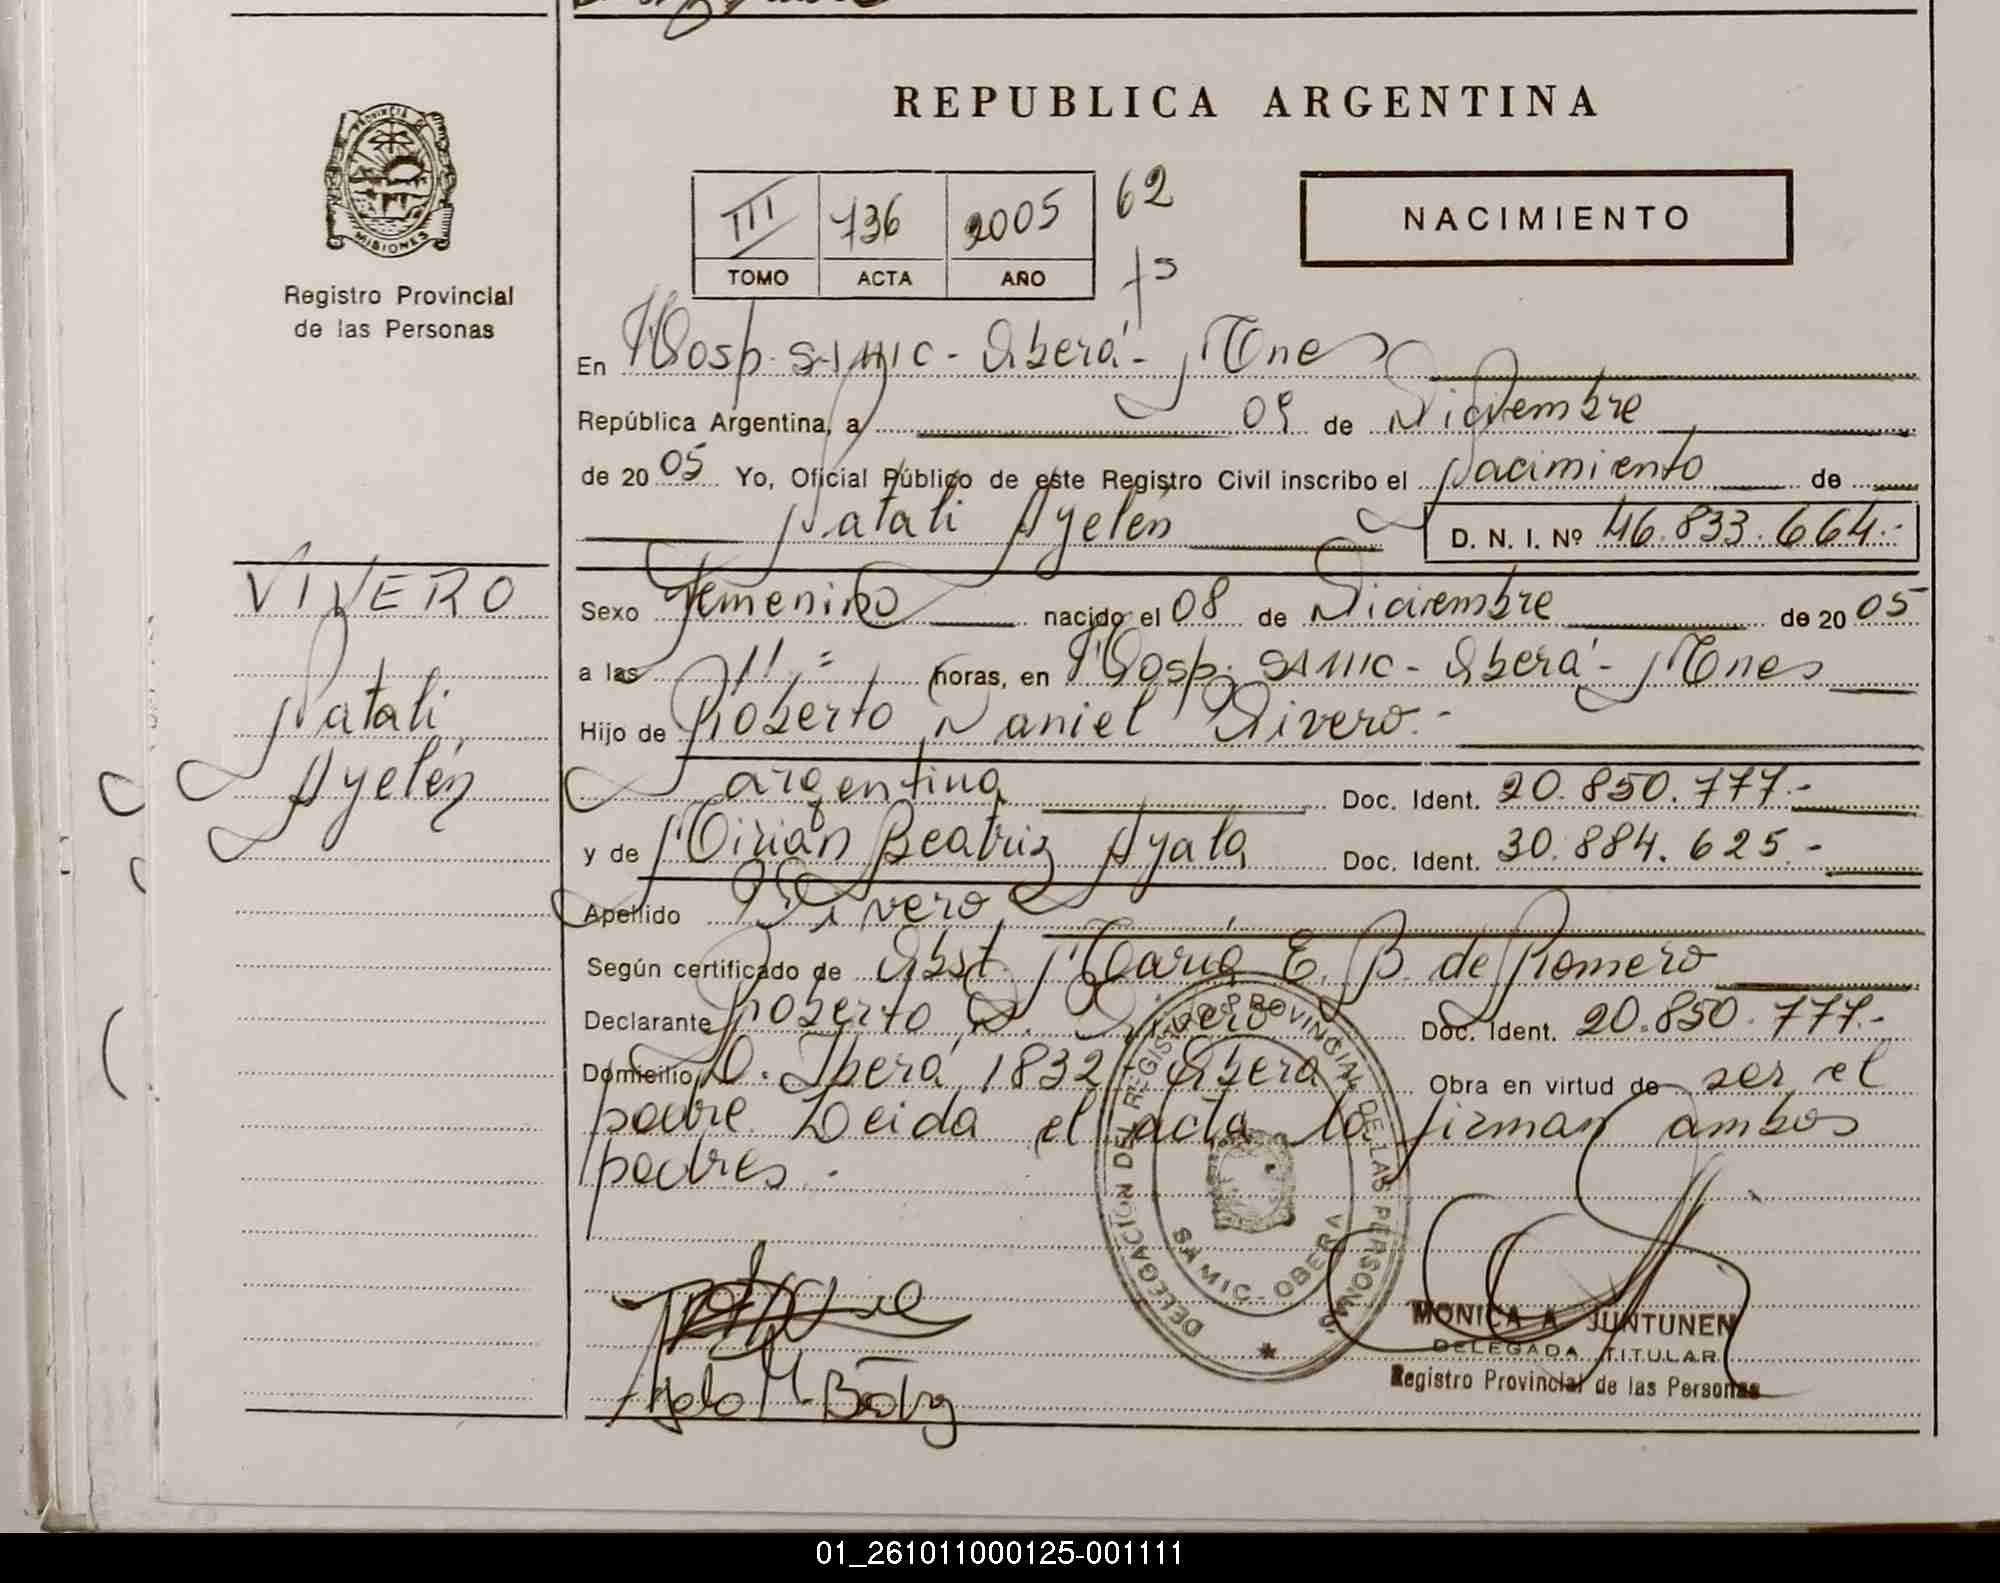 REPUBLICA ARGENTINA
PROVINCIA DE
MISIONES
Registro Provincial
de las Personas
III 736 2005 62
TOMO ACTA AÑO
NACIMIENTO
En Hosp. SAMIC - Oberá - Mnes
República Argentina, a 09 de Diciembre
de 2005 Yo, Oficial Público de este Registro Civil inscribo el Nacimiento de
Natali Ayelén D. N. I. Nº 46.833.664.-
VIVERO
Natali
Ayelén
Sexo Femenino nacido el 08 de Diciembre de 2005
a las 11.= horas, en Hosp. SAMIC - Oberá - Mnes
Hijo de Roberto Daniel Vivero.-
argentina Doc. Ident. 20.850.777.-
y de Mirian Beatriz Ayala Doc. Ident. 30.884.625.-
Apellido Vivero
Según certificado de Obst. María E. B. de Romero
Declarante Roberto D. Vivero Doc. Ident. 20.850.777.-
Domicilio D. Iberá 1832 Oberá Obra en virtud de ser el
padre. Leida el acta la firman ambos
padres.-
DELEGACIÓN DEL REGISTRO PROVINCIAL DE LAS PERSONAS
SAMIC - OBERA
MONICA A. JUNTUNEN
DELEGADA TITULAR
Registro Provincial de las Personas
01_261011000125-001111